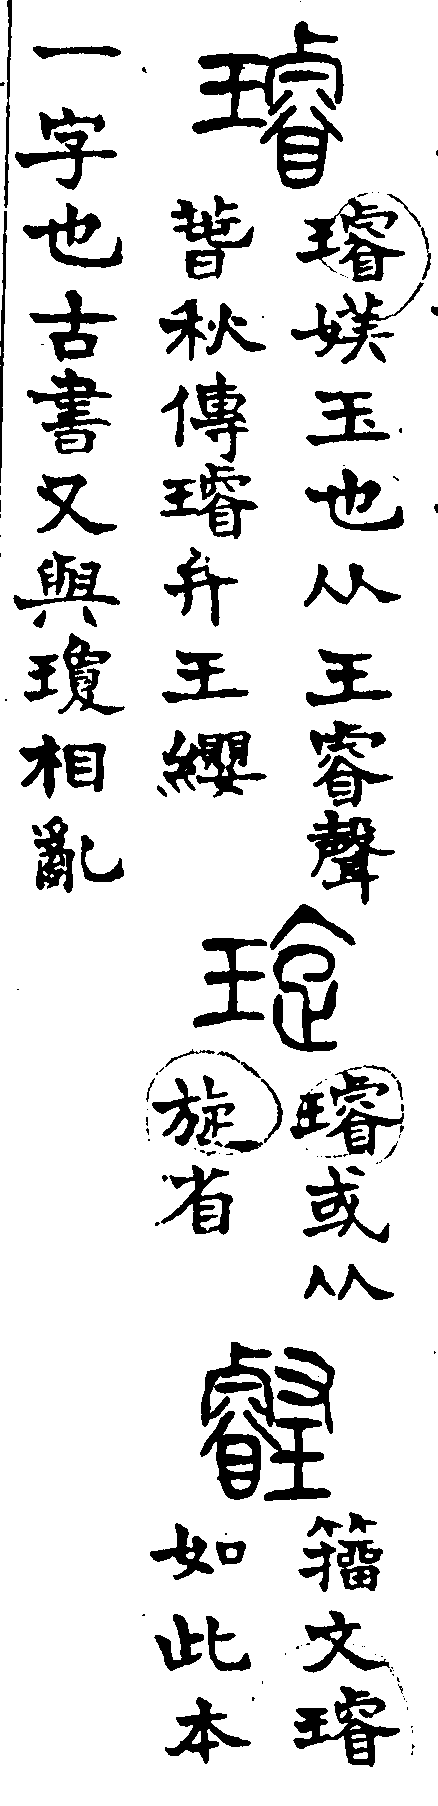 璿
璿媄玉也从王睿聲
萅秋傳璿弁王纓
琁
璿或从
旋省
籀文璿
如此本
一字也古書又與瓊相亂